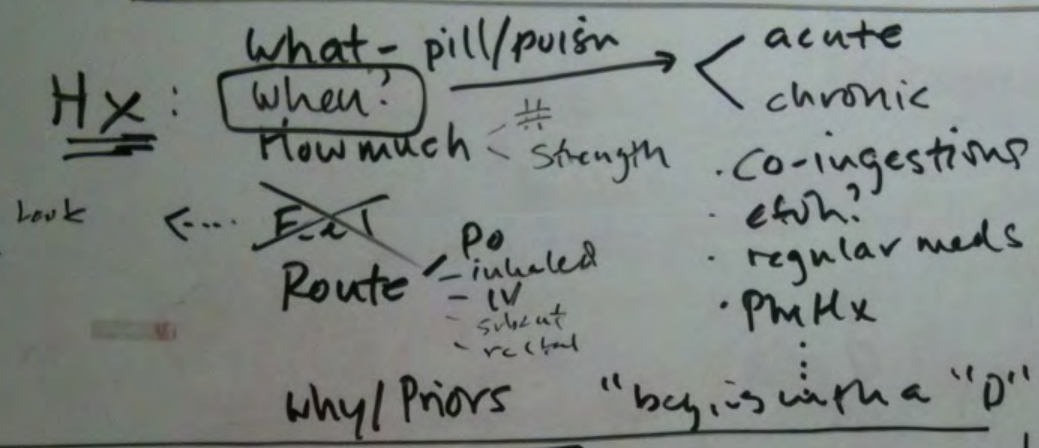 Hx:
What - pill/poisn
When?
How much
#
Strength
acute
chronic
· co-ingestions
· etoh?
· regular meds
· PMHx
Look
Route
PO
- inhaled
- IV
- subcut
- rectal
Why/Priors
"begins with a "D"